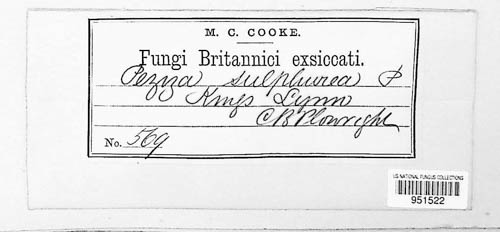 M. C. COOKE.
Fungi Britannici exsiccati.
Peziza sulphurea P
Kings Lynn
C B Plowright
No. 569
US NATIONAL FUNGUS COLLECTIONS
951522